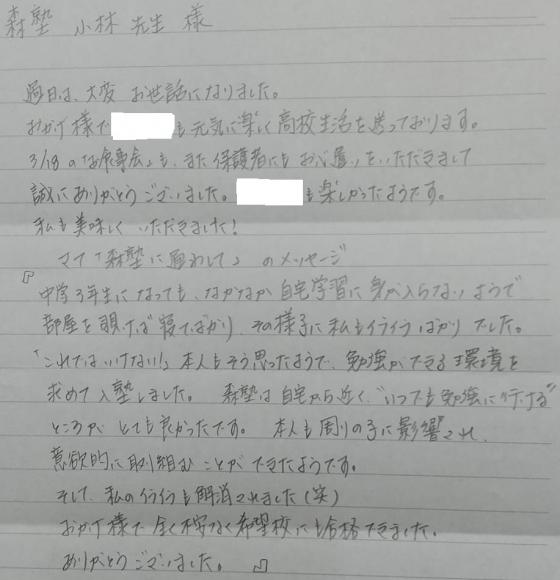 森塾 小林 先生 様
過日は、大変 お世話になりました。
おかげ様で も元気に楽しく高校生活を送っております。
3/18の「お食事会」も、また保護者にもお心遣いをいただきまして
誠にありがとうございました。 も楽しかったようです。
私も美味しく いただきました!
ママ「森塾に通わして」のメッセージ
『中学3年生になっても、なかなか自宅学習に身が入らないようで
部屋を覗けば寝てばかり、その様子に私もイライラばかりでした。
「これではいけない!」本人もそう思ったようで、勉強ができる環境を
求めて入塾しました。 森塾は自宅から近く、"いつでも勉強に行ける"
ところが とても良かったです。 本人も周りの子に影響され、
意欲的に取り組むことができたようです。
そして、私のイライラも解消されました(笑)
おかげ様で 全く不安なく希望校にも合格できました。
ありがとうございました。 』